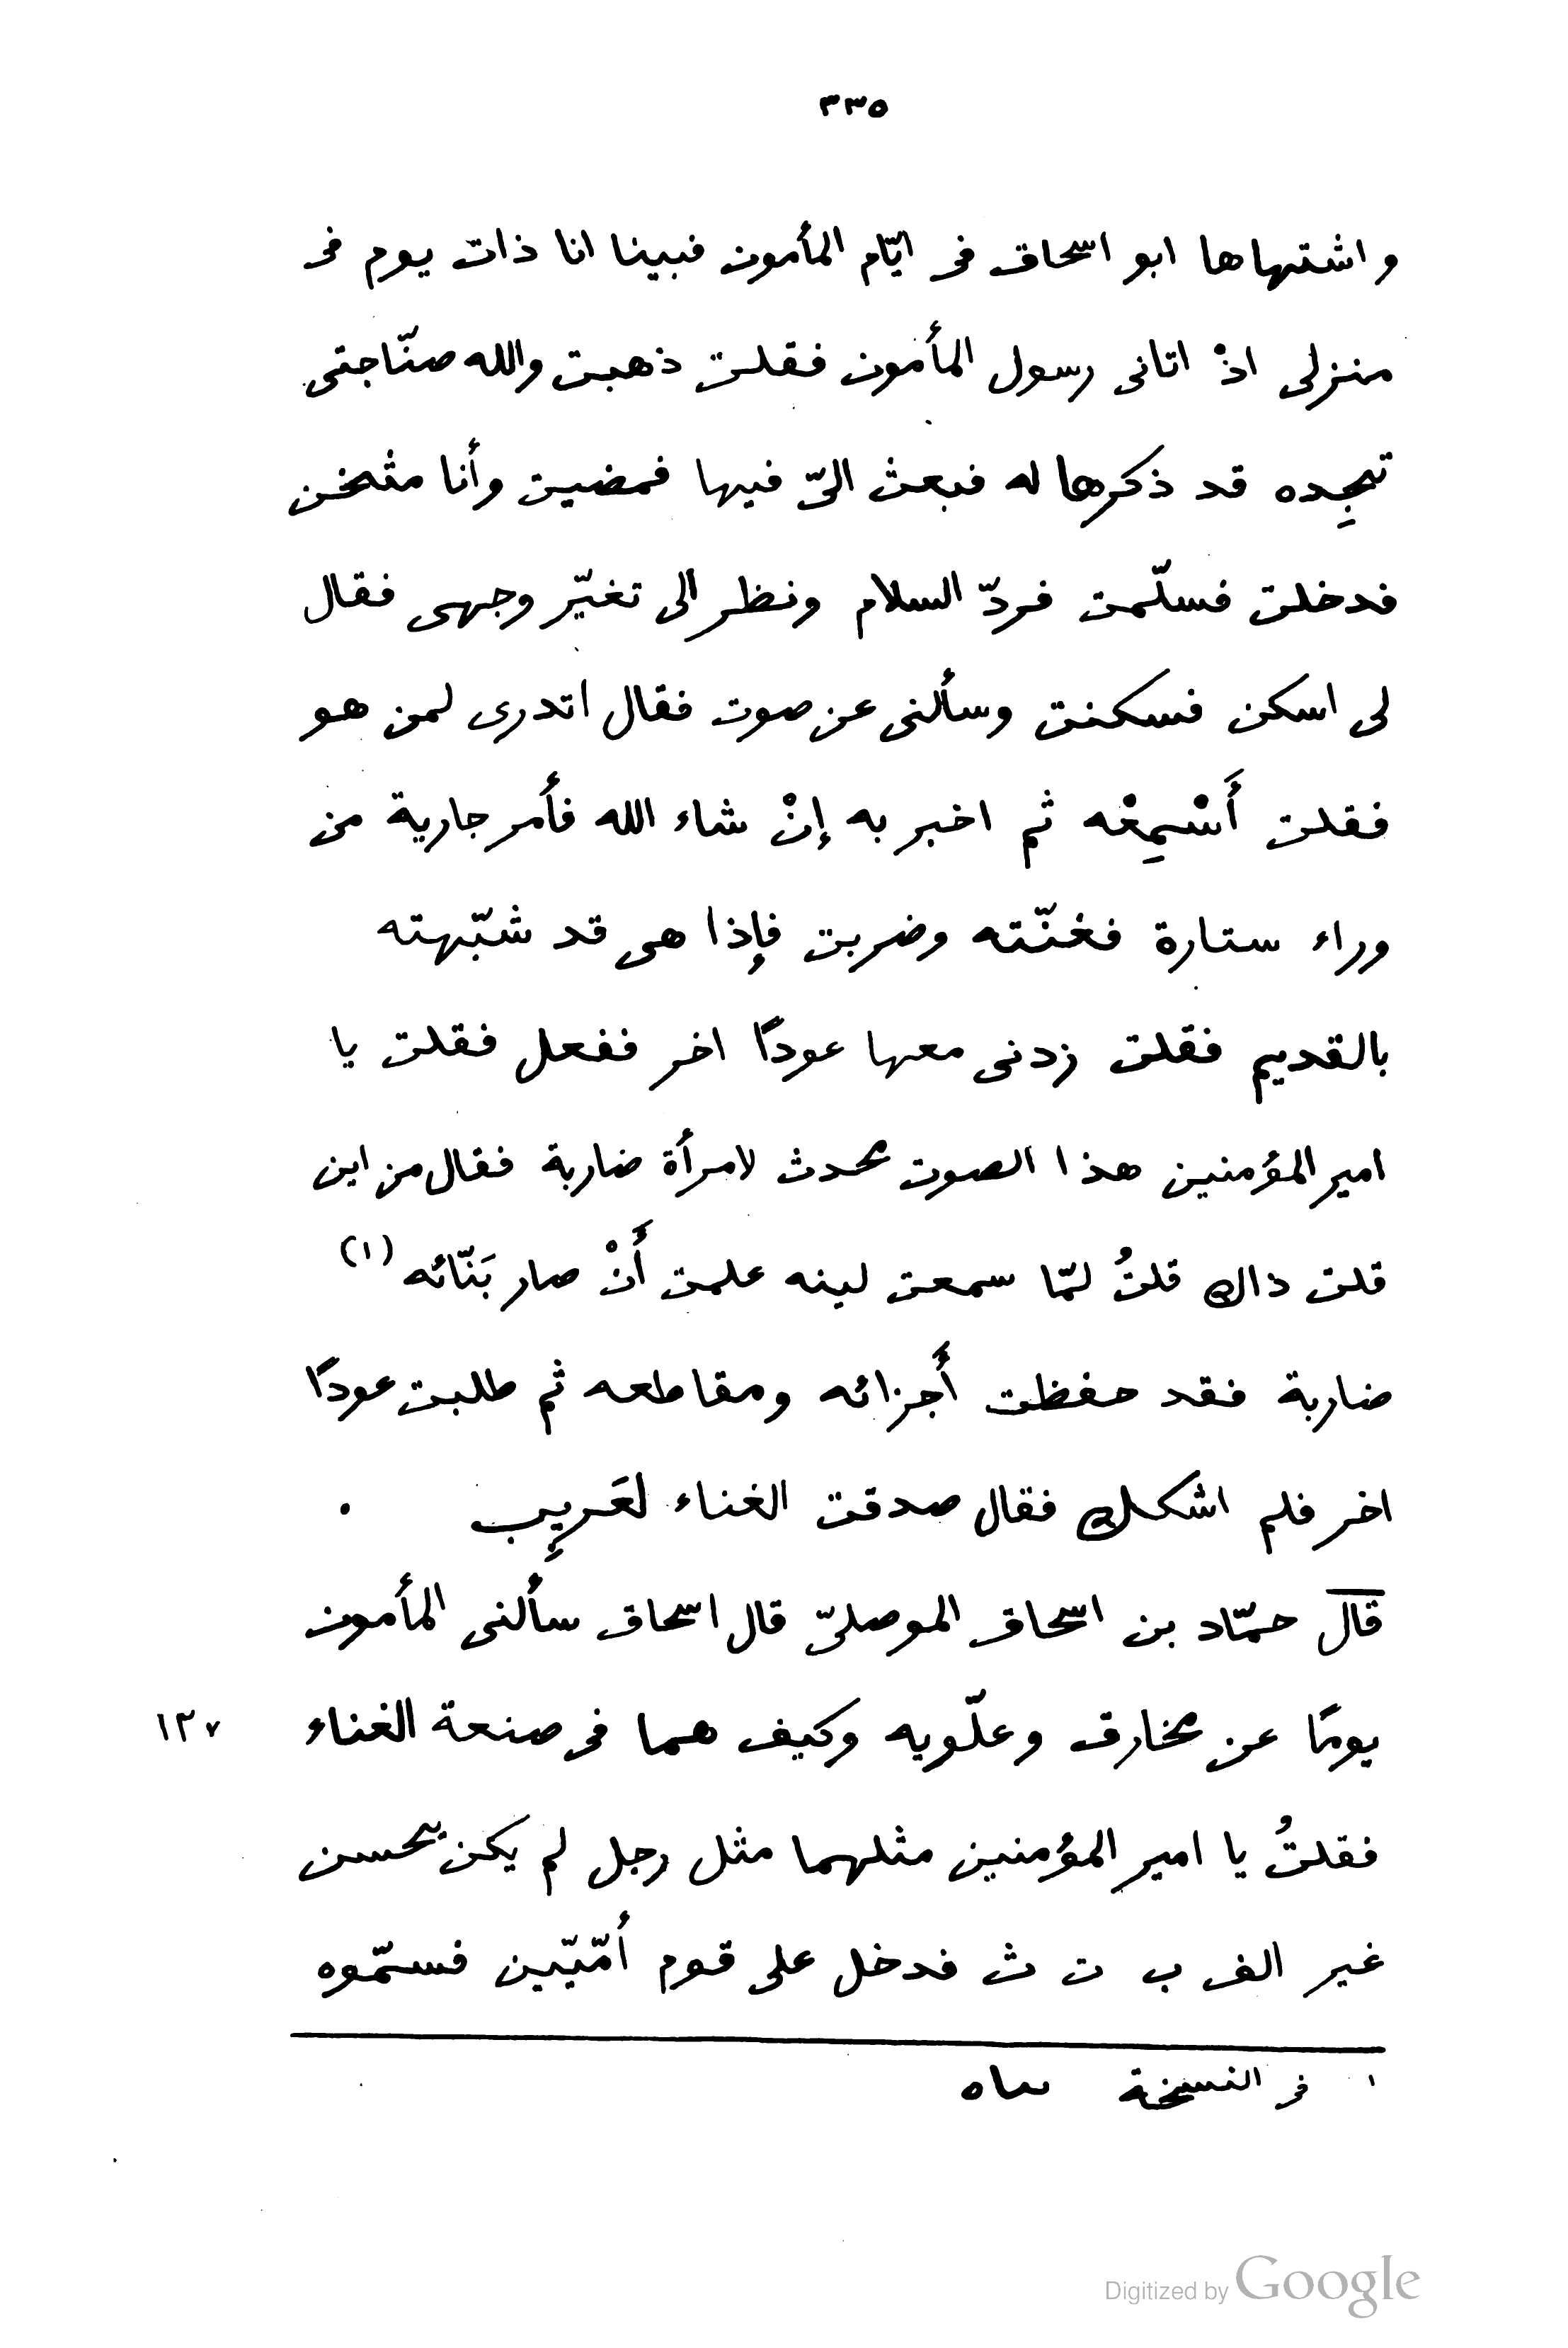 ٣٣٥
واشتهاها ابو اسحاق فى ايّام المأمون فبينا انا ذات يوم فى
منزلى اذْ اتانى رسول المأمون فقلت ذهبت والله صنّاجتى
تجِده قد ذكرها له فبعث الىّ فيها فمضيت وأنا مثخن
فدخلت فسلّمت فردّ السلام ونظر الى تغيّر وجهى فقال
لى اسكن فسكنت وسألنى عن صوت فقال اتدرى لمن هو
فقلت أَسْمِعْه ثم اخبر به إنْ شاء الله فأمر جارية من
وراء ستارة فغنّته وضربت فإذا هى قد شبّهته
بالقديم فقلت زدنى معها عودًا اخر ففعل فقلت يا
امير المؤمنين هذا الصوت محدث لامرأة ضاربة فقال من اين
قلت ذاك قلتُ لمّا سمعت لينه علمت أَنْ صار بَنّائه (١)
ضاربة فقد حفظت أَجزائه ومقاطعه ثم طلبت عودًا
اخر فلم اشكك فقال صدقت الغناء لعَريِب .
قال حمّاد بن اسحاق الموصلىّ قال اسحاق سألنى المأمون
يومًا عن مخارق وعلّويه وكيف هما فى صنعة الغناء ١٢٧
فقلتُ يا امير المؤمنين مثلهما مثل رجل لم يكن يحسن
غير الف ب ت ث فدخل على قوم أُمّيّين فسمّوه
١ فى النسخة ٮساه
Digitized by Google